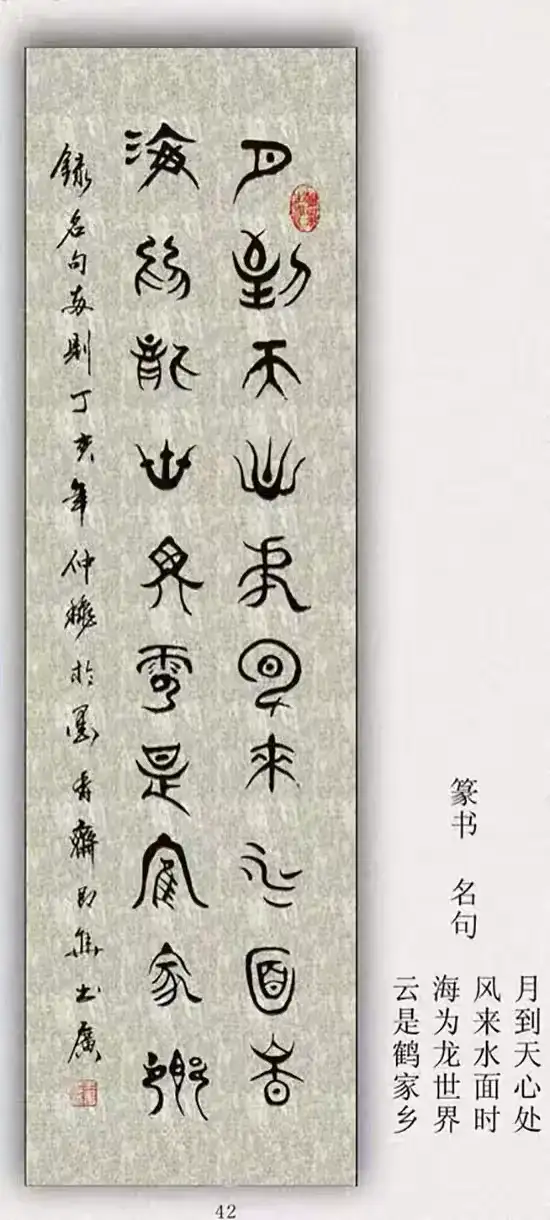 月到天心處風來水面時
海為龍世界雲是鶴家鄉
錄名句两則丁亥年仲穐於墨香齋
篆书 名句
月到天心处
风来水面时
海为龙世界
云是鹤家乡
42